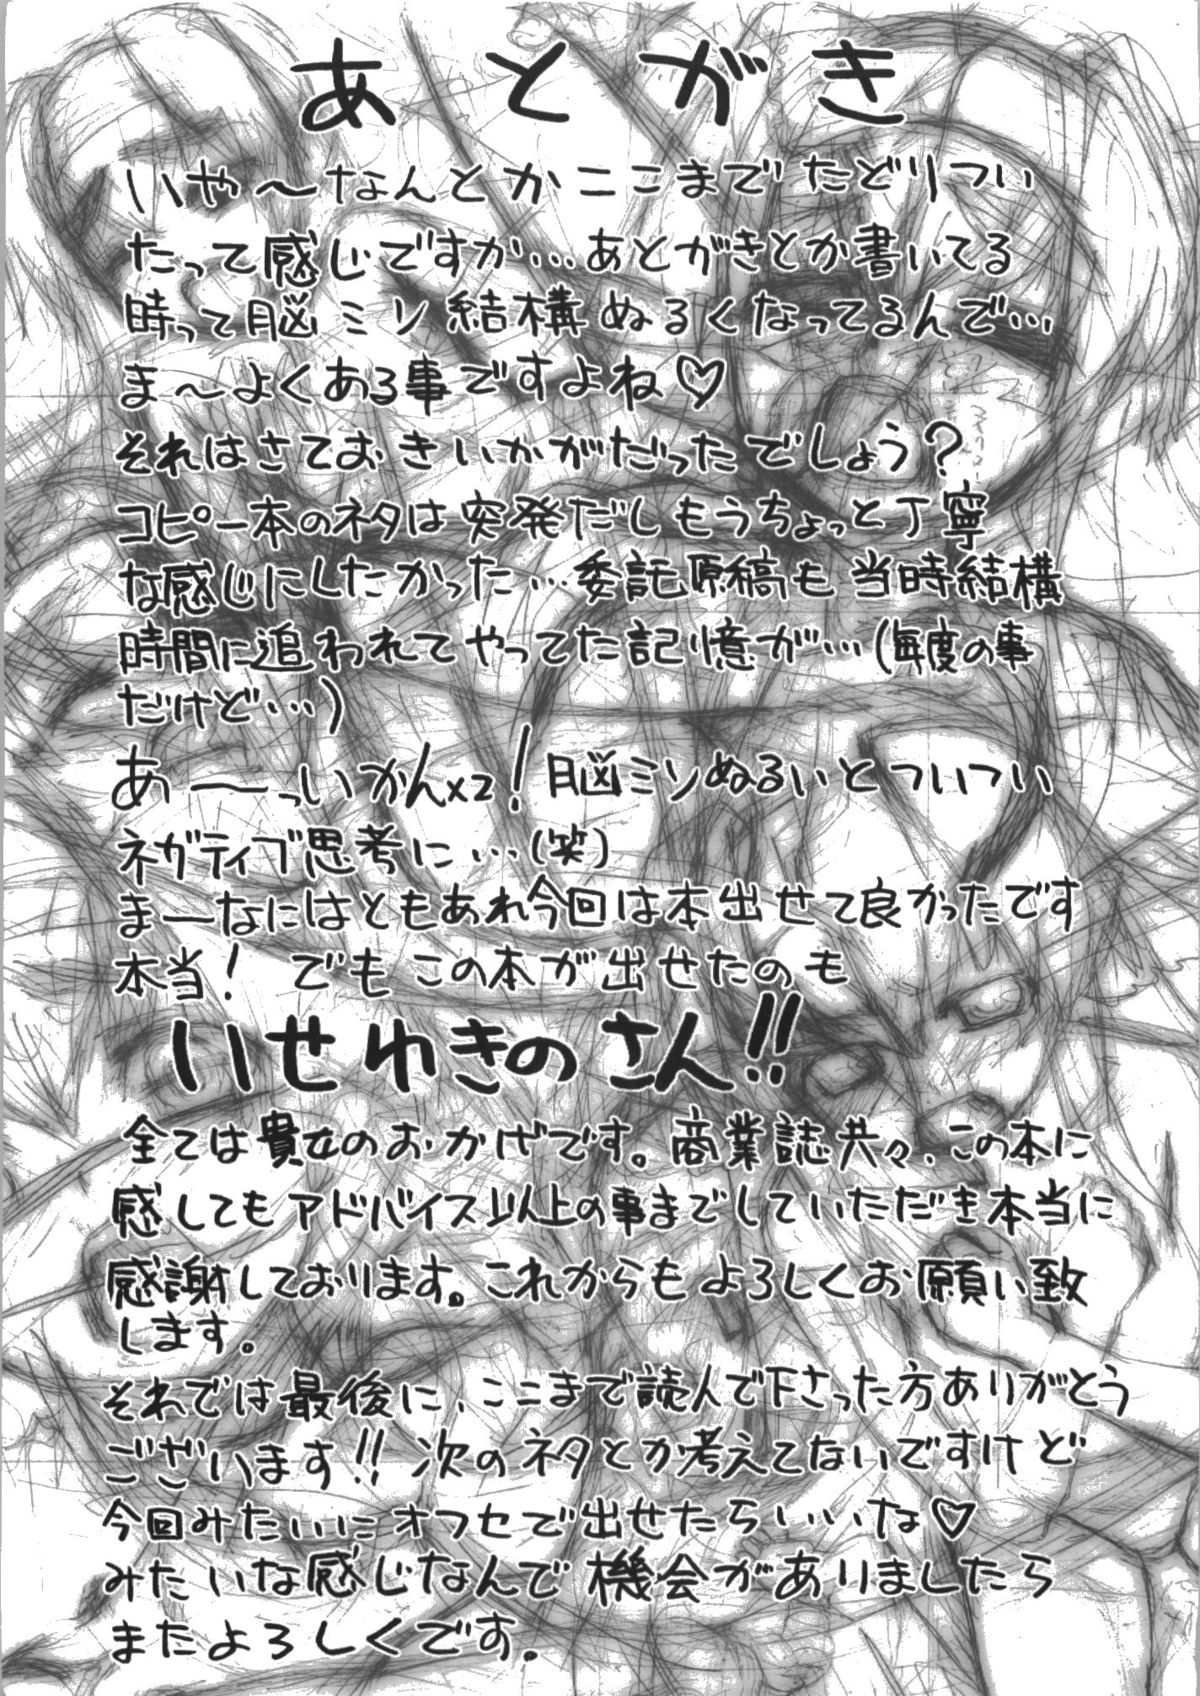 あとがき
いや〜なんとかここまでたどりつい
たって感じですか…あとがきとか書いてる
時って脳ミソ結構ぬるくなってるんで…
ま〜よくある事ですよね♡
それはさておきいかがだったでしょう?
コピー本のネタは突発だしもうちょっと丁寧
な感じにしたかった…委託原稿も当時結構
時間に追われてやってた記憶が…(毎度の事
だけど…)
あ〜っいかん×2!脳ミソぬるいとついつい
ネガティブ思考に…(笑)
まーなにはともあれ今回は本出せて良かったです
本当! でもこの本が出せたのも
いせわきのさん!!
全ては貴女のおかげです。商業誌共々、この本に
感してもアドバイス以上の事までしていただき本当に
感謝しております。これからもよろしくお願い致
します。
それでは最後に、ここまで読んで下さった方ありがとう
ございます!!次のネタとか考えてないですけど
今回みたいにオフセで出せたらいいな♡
みたいな感じなんで機会がありましたら
またよろしくです。